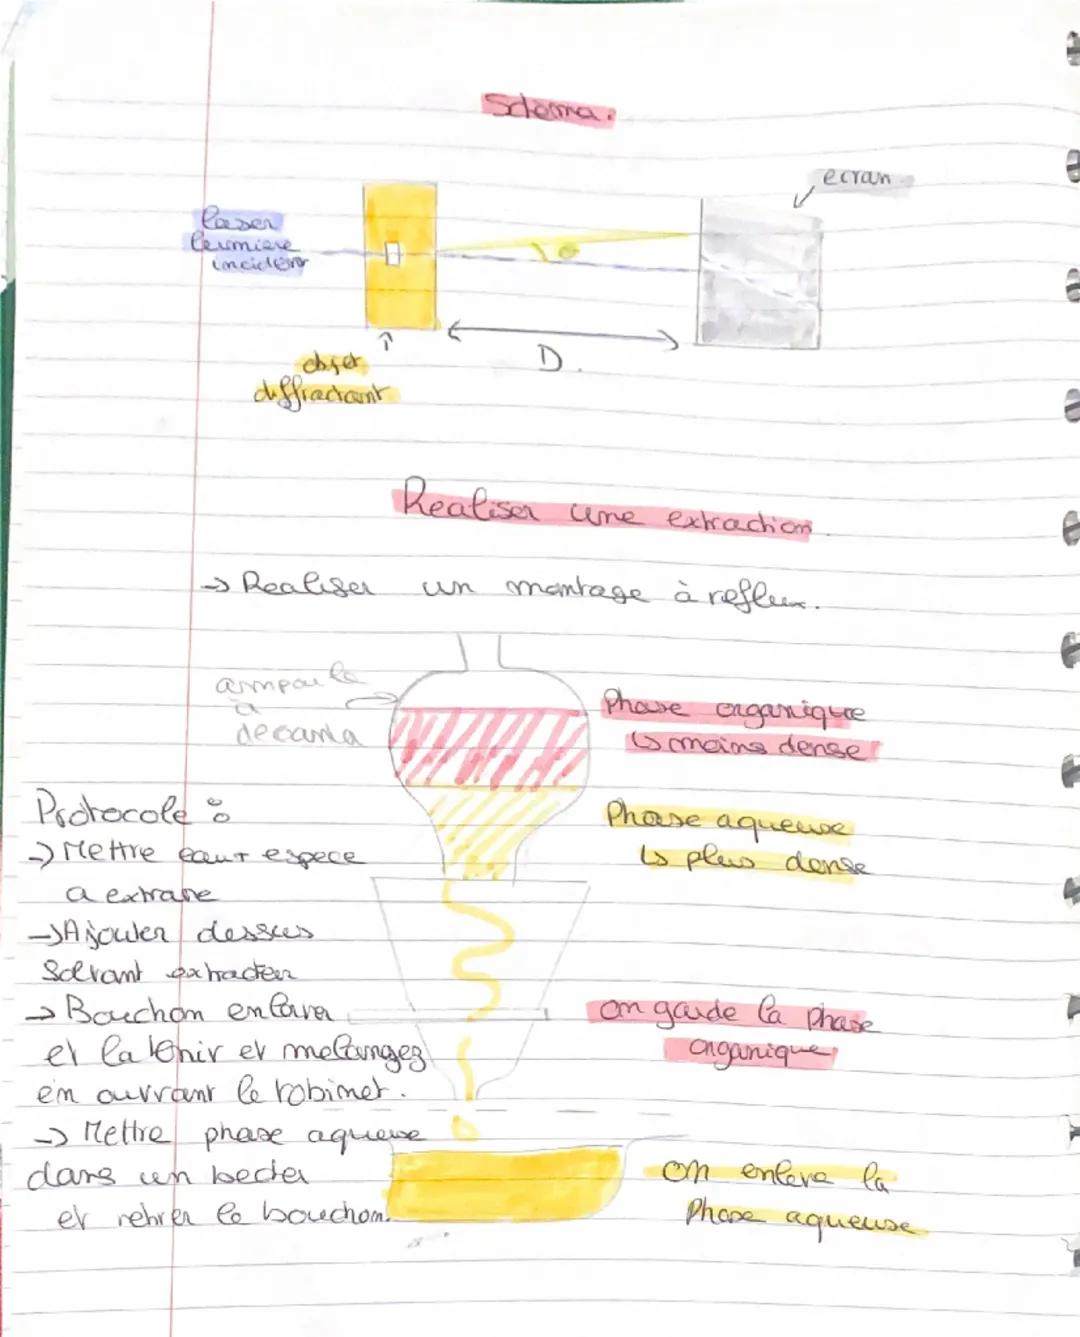 Schema:
ecran
laser
lumiere
incidente
θ
D.
objet
diffractant
Realiser une extraction
→ Realiser un montage à reflux.
ampoule
à
decanta
Phase organique
↳ moins dense
Phase aqueuse
↳ plus dense
Protocole :
→ Mettre eau + espece
a extraire
→ Ajouter dessus
Solvant extracteur
→ Bouchon enlever
et la tenir et melangez
en ouvrant le robinet.
→ Mettre phase aqueuse
dans un becher
et retirer le bouchon.
on garde la phase
organique
on enleve la
Phase aqueuse